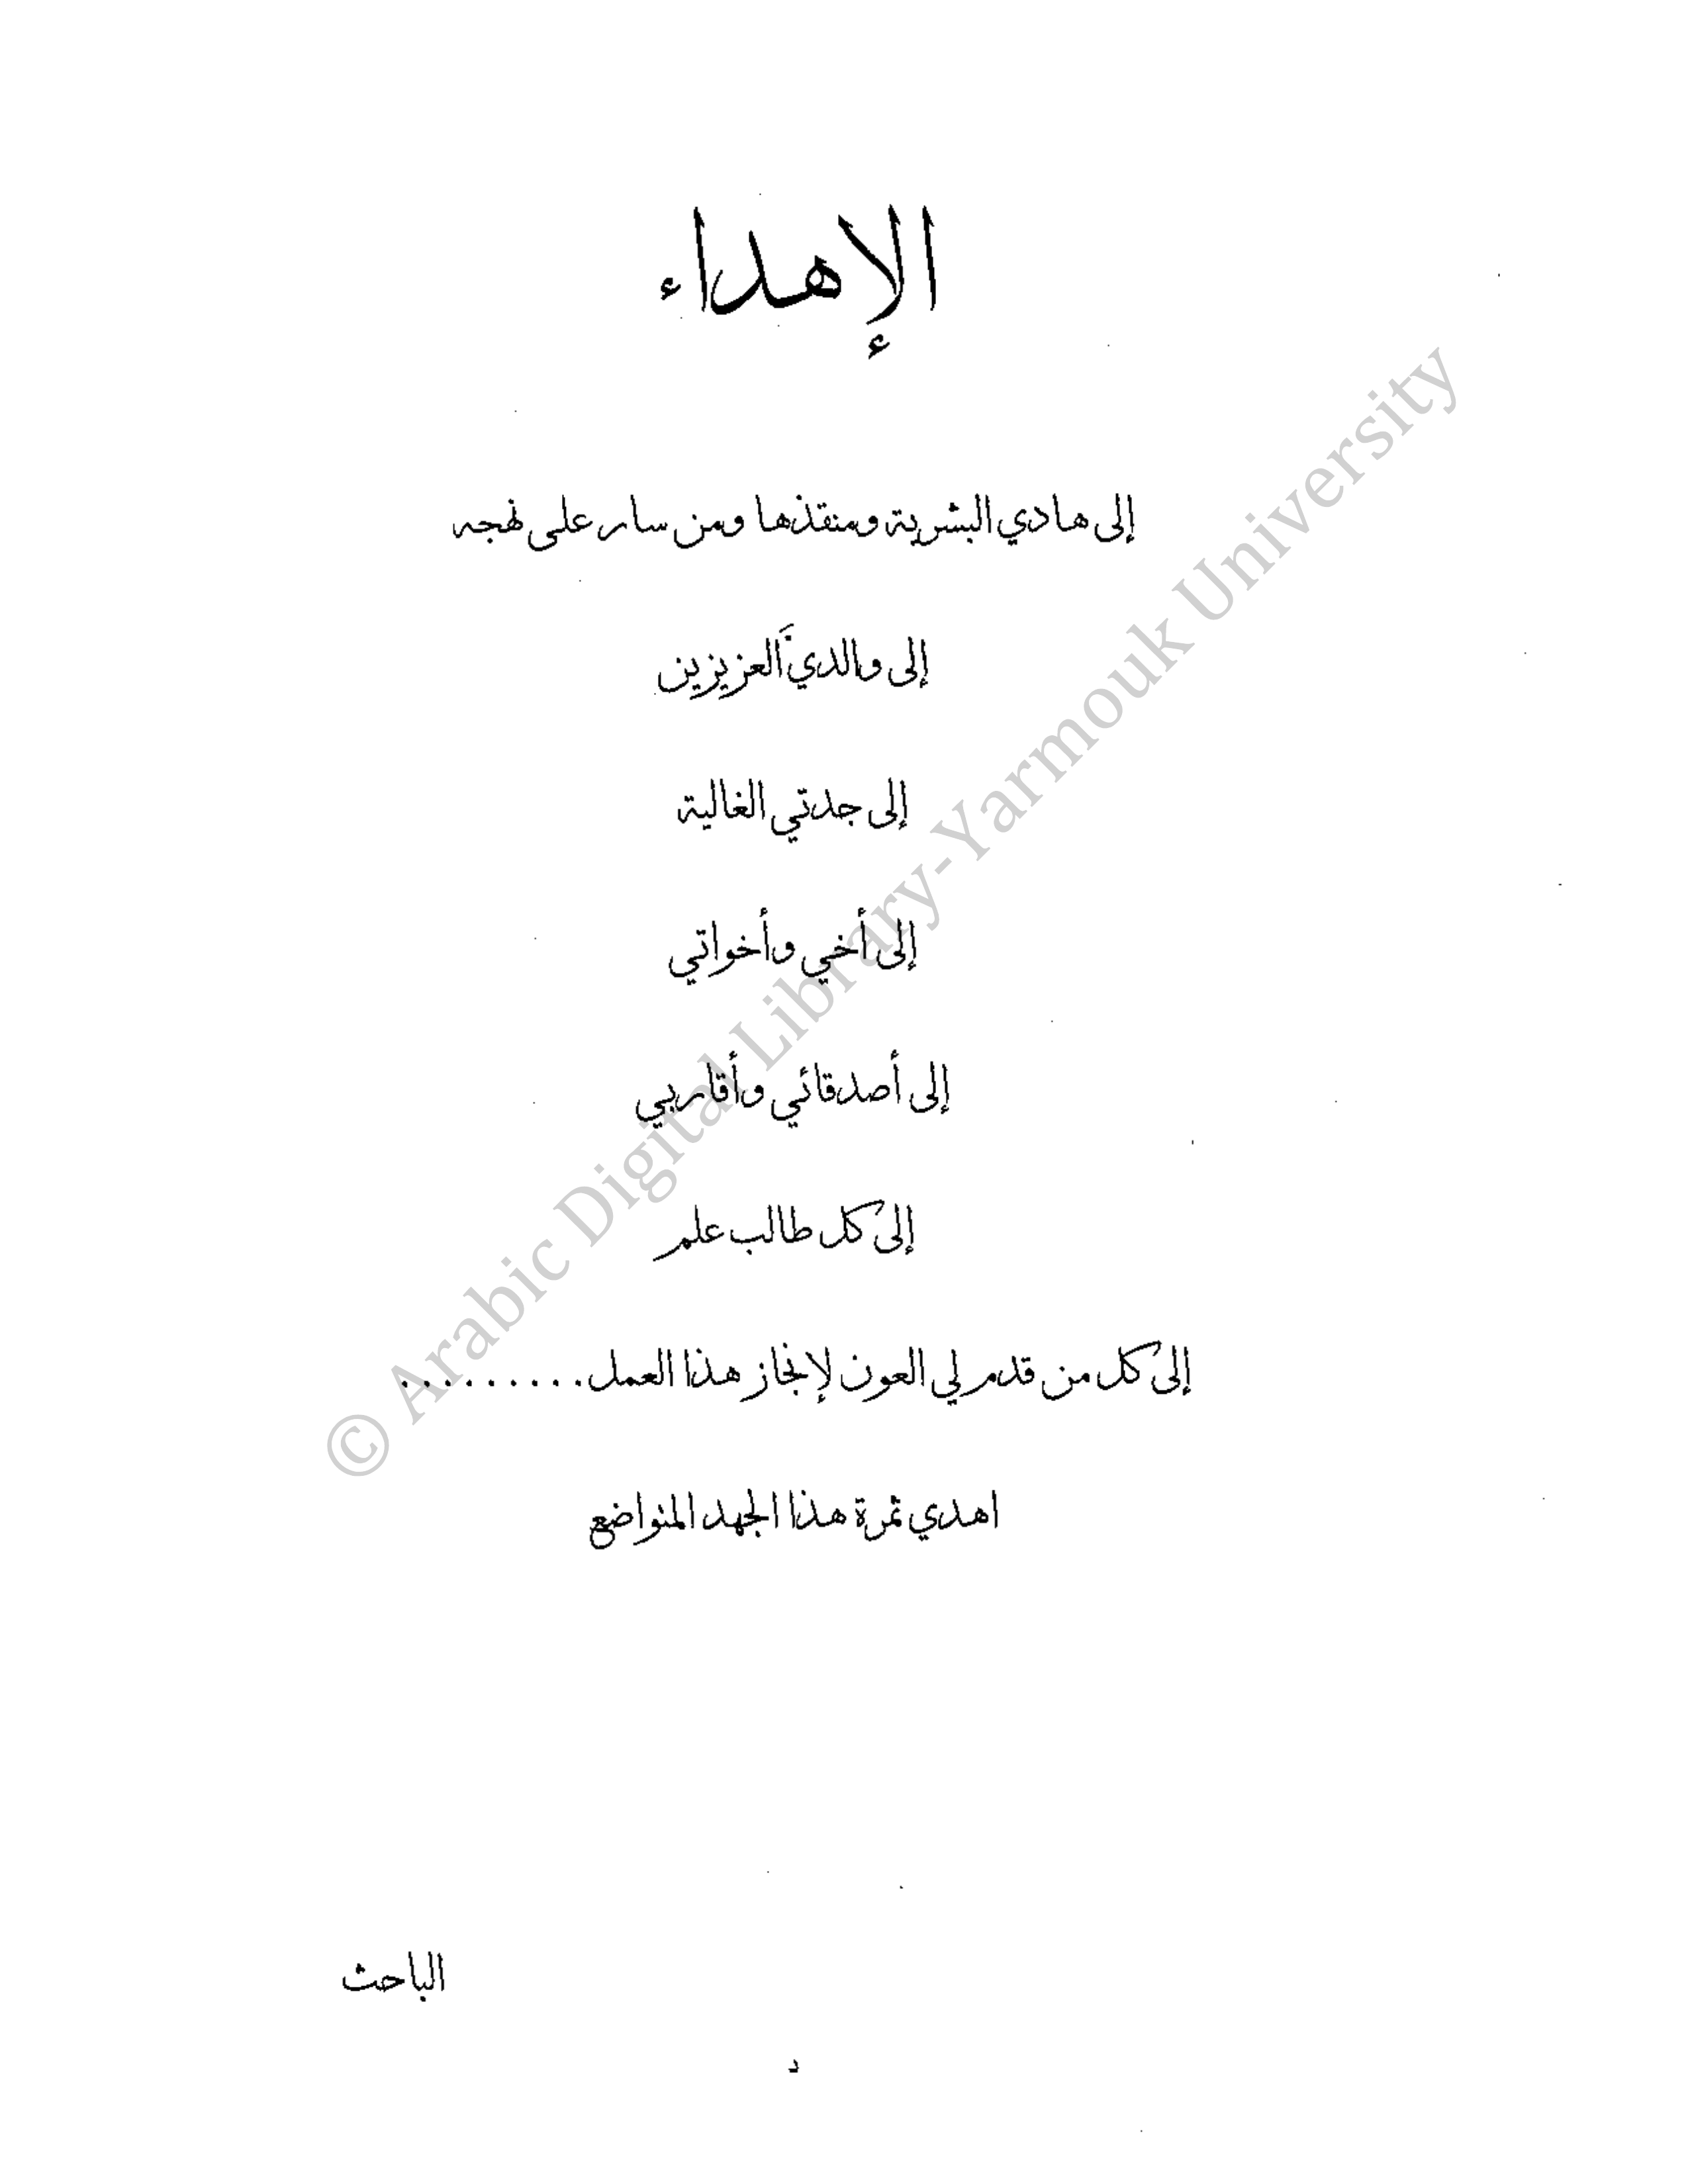 الإهداء
إلى هادي البشرية ومنقذها ومن سار على نهجه
إلى والديَّ العزيزين
إلى جدتي الغالية
إلى أخي وأخواتي
إلى أصدقائي وأقاربي
إلى كل طالب علم
إلى كل من قدم لي العون لإنجاز هذا العمل.........
اهدي ثمرة هذا الجهد المتواضع
الباحث
د
© Arabic Digital Library-Yarmouk University